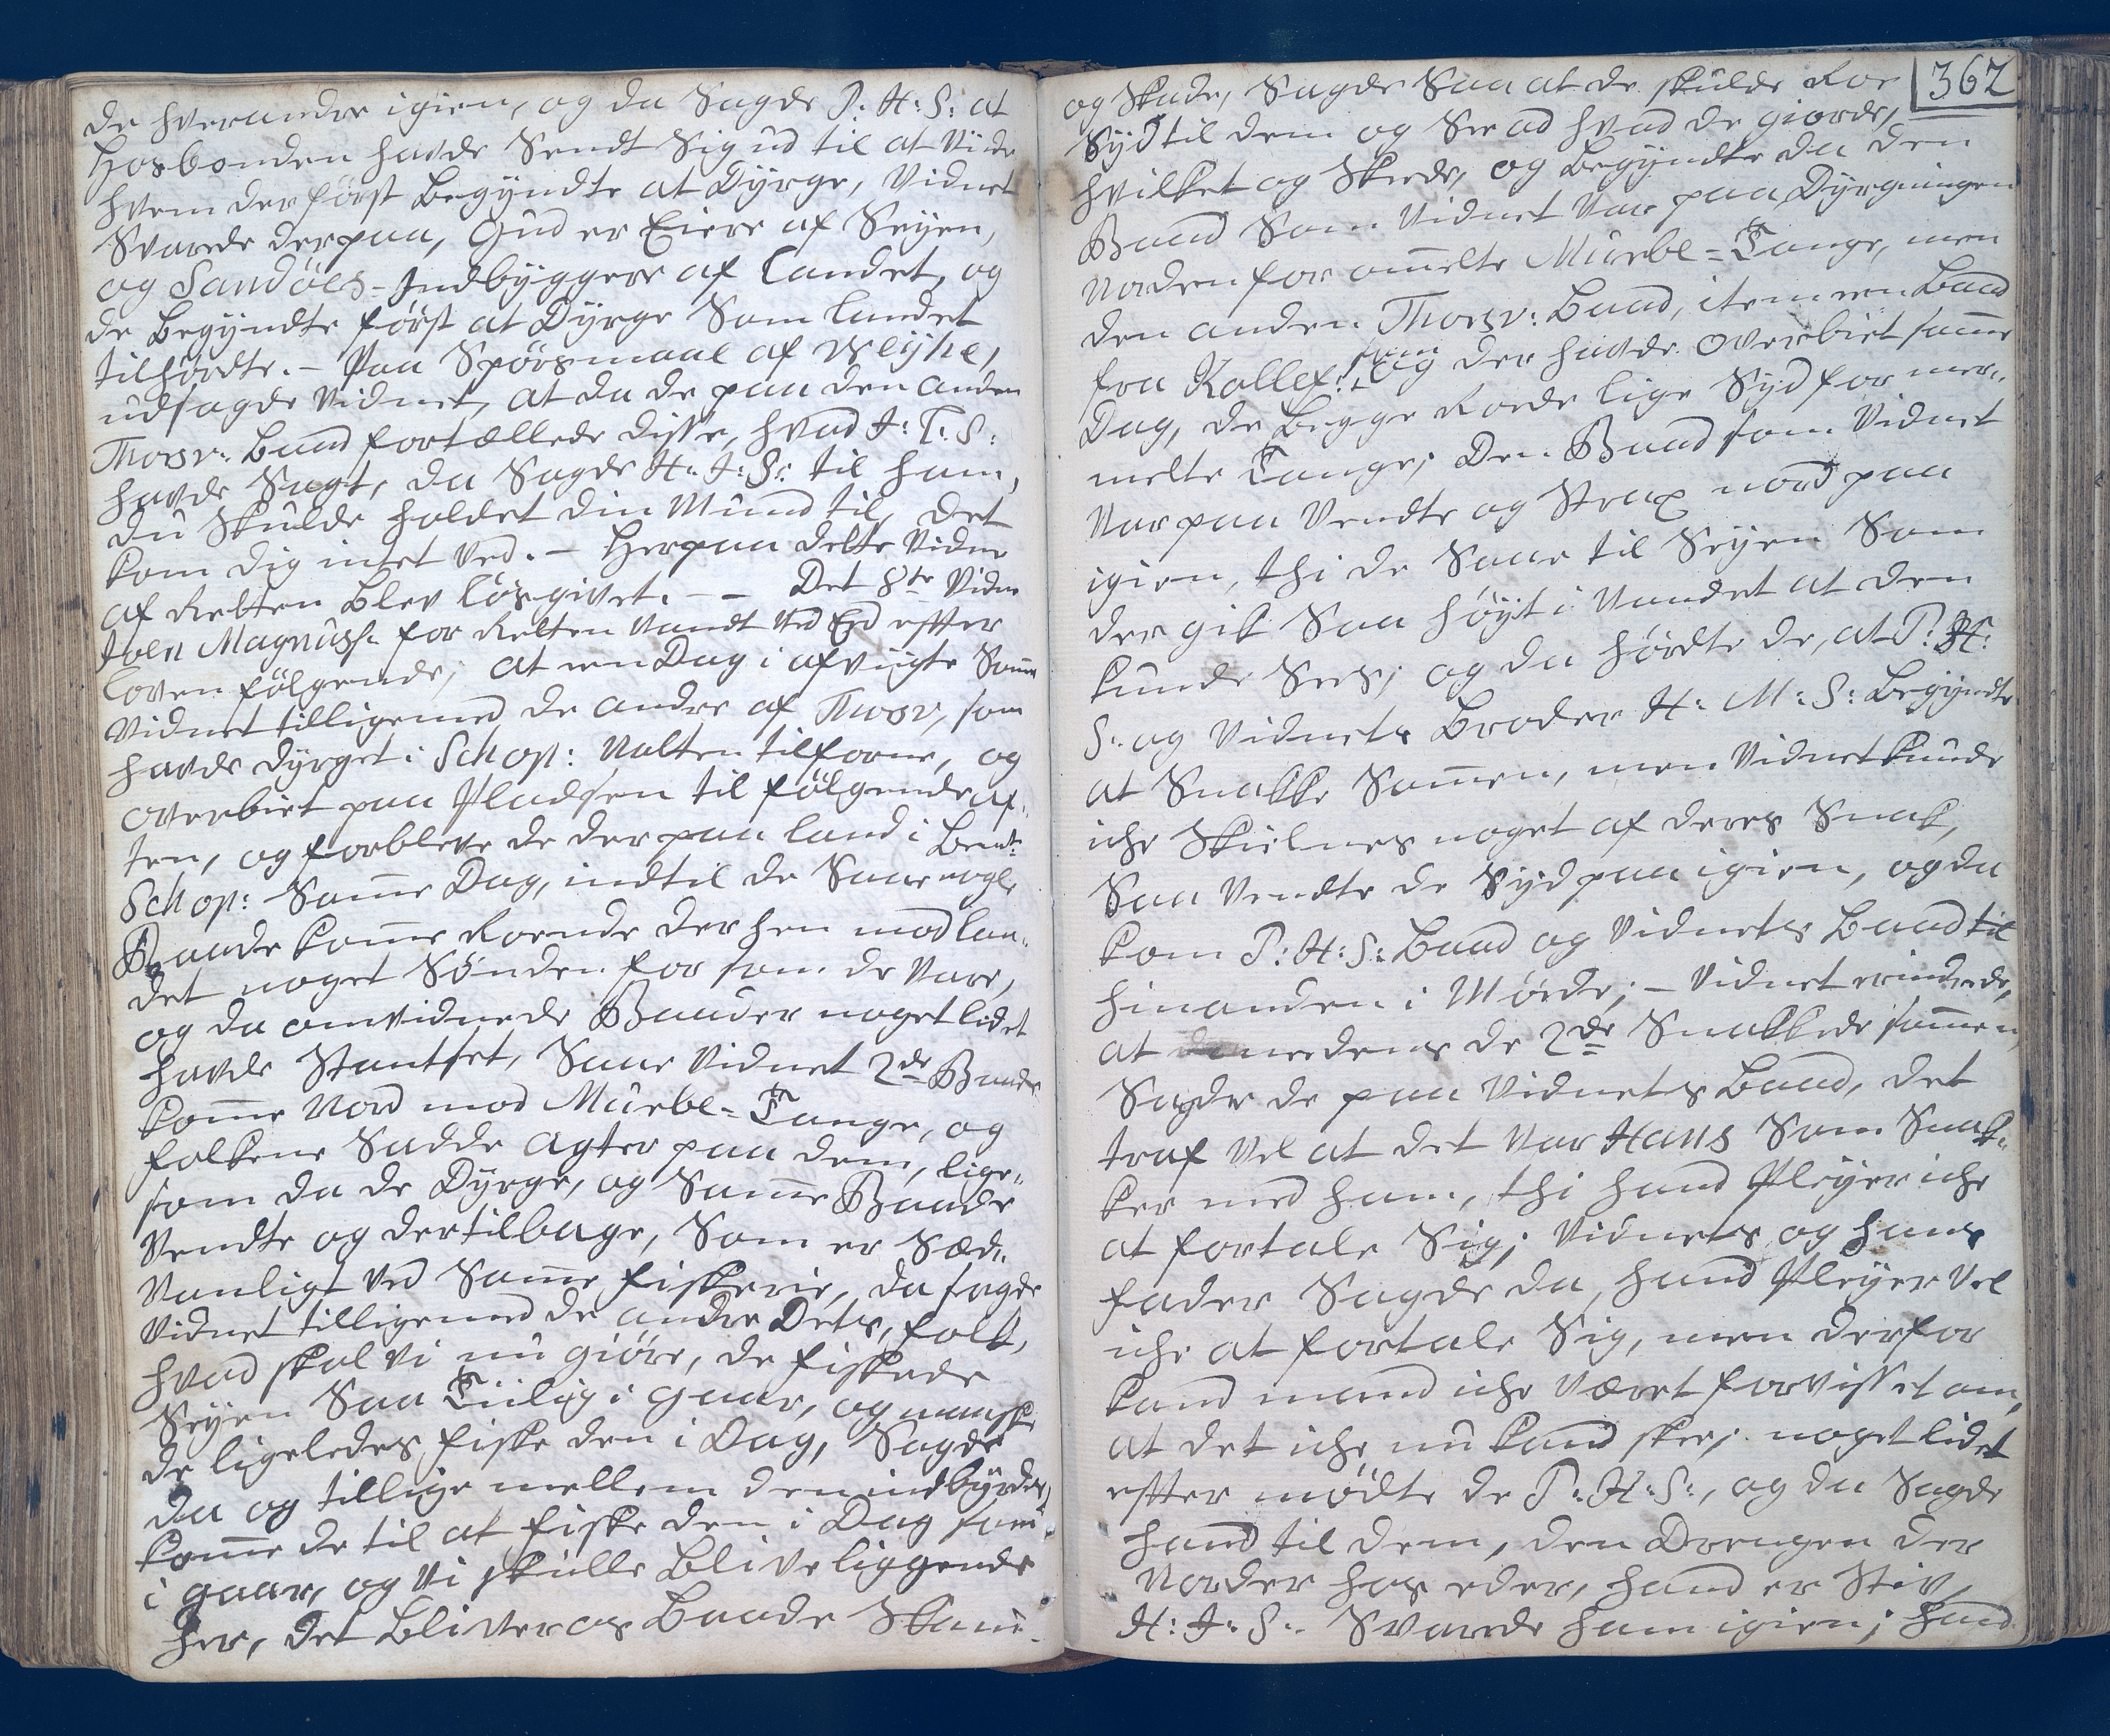 de hverandre igien, og da Sagde P: H: S: at
Hosbonden havde Sendt Sig ud til at Vide
hvem der først begyndte at Dyrge, Vidnet
Svarede derpaa, Gud er Eiere af Seyen,
og Sandöes-Indbyggere af Landet, og
de begyndte først at Dyrge Som Landet
tilhørdte. - Paa Spörsmaal af Weyhe,
udsagde Vidnet, at da de paa den anden
Thorsv: Baad fortællede disse, hvad J: T: S:
havde Sagt, da Sagde H: J: S: til ham,
du Skulde holdet din Mund til, det
kom dig intet ved. - Herpaa dette Vidne
af Retten blev løsgivet. - - Det 8te Vidne
Joen Magnuss: for Retten Vandt Ved Eed effter
Loven følgende, at een Dag i afvigte Som̄er
Vidnet tilligemed de andre af Thorsv, som
havde dyrget i Schop: Natten tilforne, og
overbiet paa Pladsen til følgende Af-
ten, og forbleve de der paa land i bem̄te
Schop: Sam̄e Dag, indtil de Saae nogle
Baade kom̄e Roende der hen mod lan-
det noget Sønden for som de Vare,
og da omvidnede Baader noget lidet
havde Stantset, Saae Vidnet 2de Baade
kom̄e Nord mod Murble-Tange, og
folkene Sadde agter paa dem, lige-
som da de Dyrge, og Sam̄e Baade
Vendte og dertilbage, Som er Sæd-
vanligt ved Sam̄e fiskerie, da sagde
Vidnet tilligemed de andre Dets folk,
hvad skal vi nu giöre, de fiskede
Seyen Saa Tiilig i gaar, og maaskee
de ligeledes fiske den i Dag, Sagde
da og tillige mellem dem indbyrdes,
kom̄e de til at fiske den i Dag som
i gaar, og vi skulle blive liggende
her, det bliver os baade Skam̄
362
og Skade, Sagde Saa at de skulde Roe
Syd til dem og See ad hvad de giorde,
hvilket og Skeede, og begyndte da den
Baad Som Vidnet Var paa Dyrgningen
Norden for om̄elte Murble-Tange, men
den anden Thorsv: Baad, item een Baad
fra Kollef: som og der havde overbiet sam̄e
Dag, de begge Roede lige Syd for mer-
melte Tange; Den Baad som Vidnet
Var paa Vendte og Strax nord paa
igien, thi de Saae til Seyen Som
der gik Saa höyt i Vandet at den
kunde Sees; og da hørdte de, at P: H:
S: og Vidnets Broder H: M: S: begyndte
at Snakke Sam̄en, men Vidnet kunde
iche Skielnes noget af deres Snak,
Saa Vendte de Syd paa igien, og da
kom P: H: S: Baad og Vidnets Baad til
hinanden i Møde; - Vidnet erindrede,
at meedens de 2de Snakkede sam̄en,
Sagde de paa Vidnets Baad, det
traf Vel at det Var Hans Som Snak-
ker med ham, thi hand Pleyer iche
at fortale Sig; Vidnets og hans
fader Sagde da, hand Pleyer vel
iche at fortale Sig, men derfor
kand mand iche Været forvisset om,
at det iche nu kand skee; noget lidet
effter mødte de P: H: S:, og da Sagde
hand til dem, den Drengen der
Norder hos eder, hand er Stiv,
H: J: S: Svarede ham igien; hand